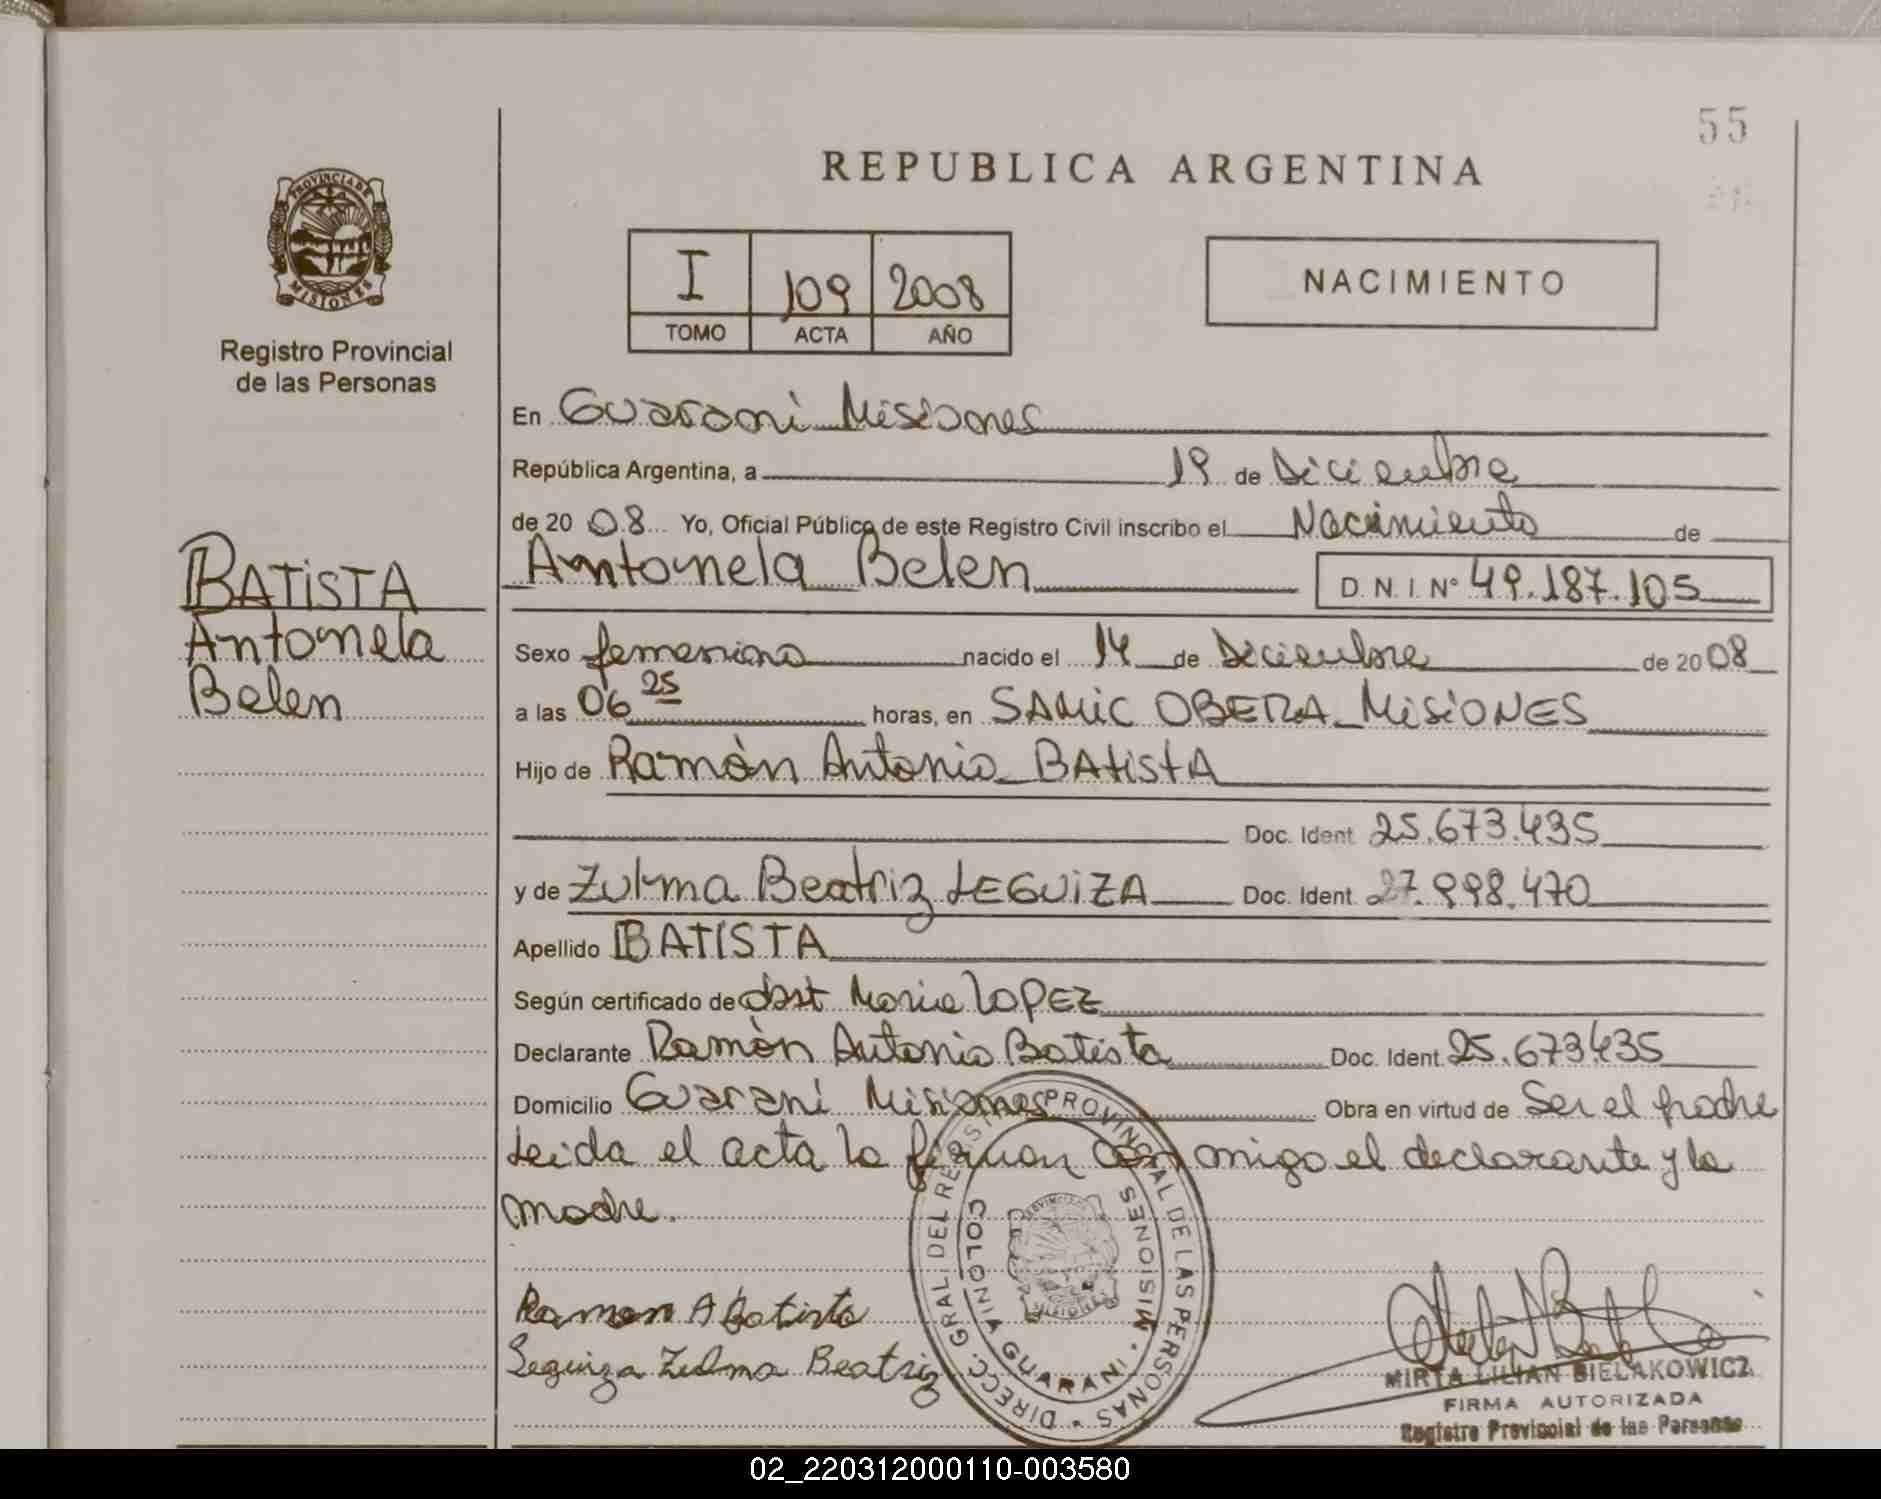 55
REPUBLICA ARGENTINA
PROVINCIA DE
MISIONES
Registro Provincial
de las Personas
I 109 2008
TOMO ACTA AÑO
NACIMIENTO
En Guarani Misiones
República Argentina, a 19 de Diciembre
de 20 08 Yo, Oficial Público de este Registro Civil inscribo el Nacimiento de
Antonela Belen D.N.I.Nº 49.187.105
BATiSTA
Antonela
Belen
Sexo femenino nacido el 14 de Diciembre de 20 08
a las 06 25 horas, en SAMiC OBERA MiSiONES
Hijo de Ramón Antonio BAtistA
Doc. Ident 25.673.435
y de Zulma Beatriz LEGUiZA Doc. Ident 27.998.470
Apellido BATISTA
Según certificado de obst Maria LOPEZ
Declarante Ramón Antonio Batista Doc. Ident. 25.673.435
Domicilio Guarani Misiones Obra en virtud de Ser el padre
Leida el acta la firman con migo el declarante y la
madre.
Ramon A Batista
Leguiza Zulma Beatriz
DIRECC. GRAL DEL REGISTRO PROVINCIAL DE LAS PERSONAS
COLONIA GUARANI · MISIONES
MIRTA LILIAN BIELAKOWICZ
FIRMA AUTORIZADA
Registro Provincial de las Personas
02_220312000110-003580